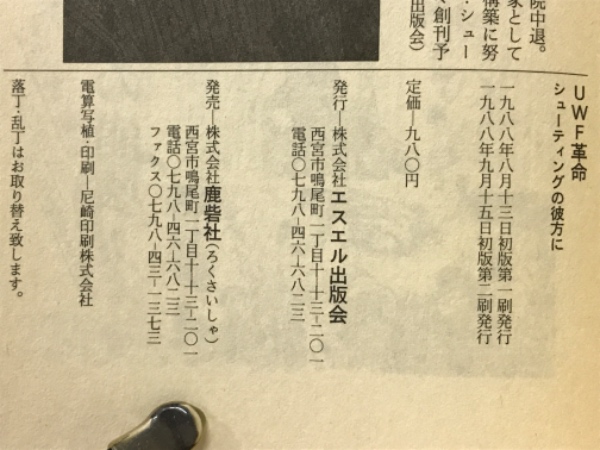 院中退。
家として
・シュー
構築に努
、創刊予
出版会）
UWF革命
シューティングの彼方に
一九八八年八月十三日初版第一刷発行
一九八八年九月十五日初版第二刷発行
定価―九八〇円
発行―株式会社エスエル出版会
西宮市鳴尾町一丁目十―十三―二〇一
電話〇七九八―四六―六八二三
発売―株式会社鹿砦社（ろくさいしゃ）
西宮市鳴尾町一丁目十―十三―二〇一
電話〇七九八―四六―六八二三
ファクス〇七九八―四三―一三七三
電算写植・印刷―尼崎印刷株式会社
落丁・乱丁はお取り替え致します。